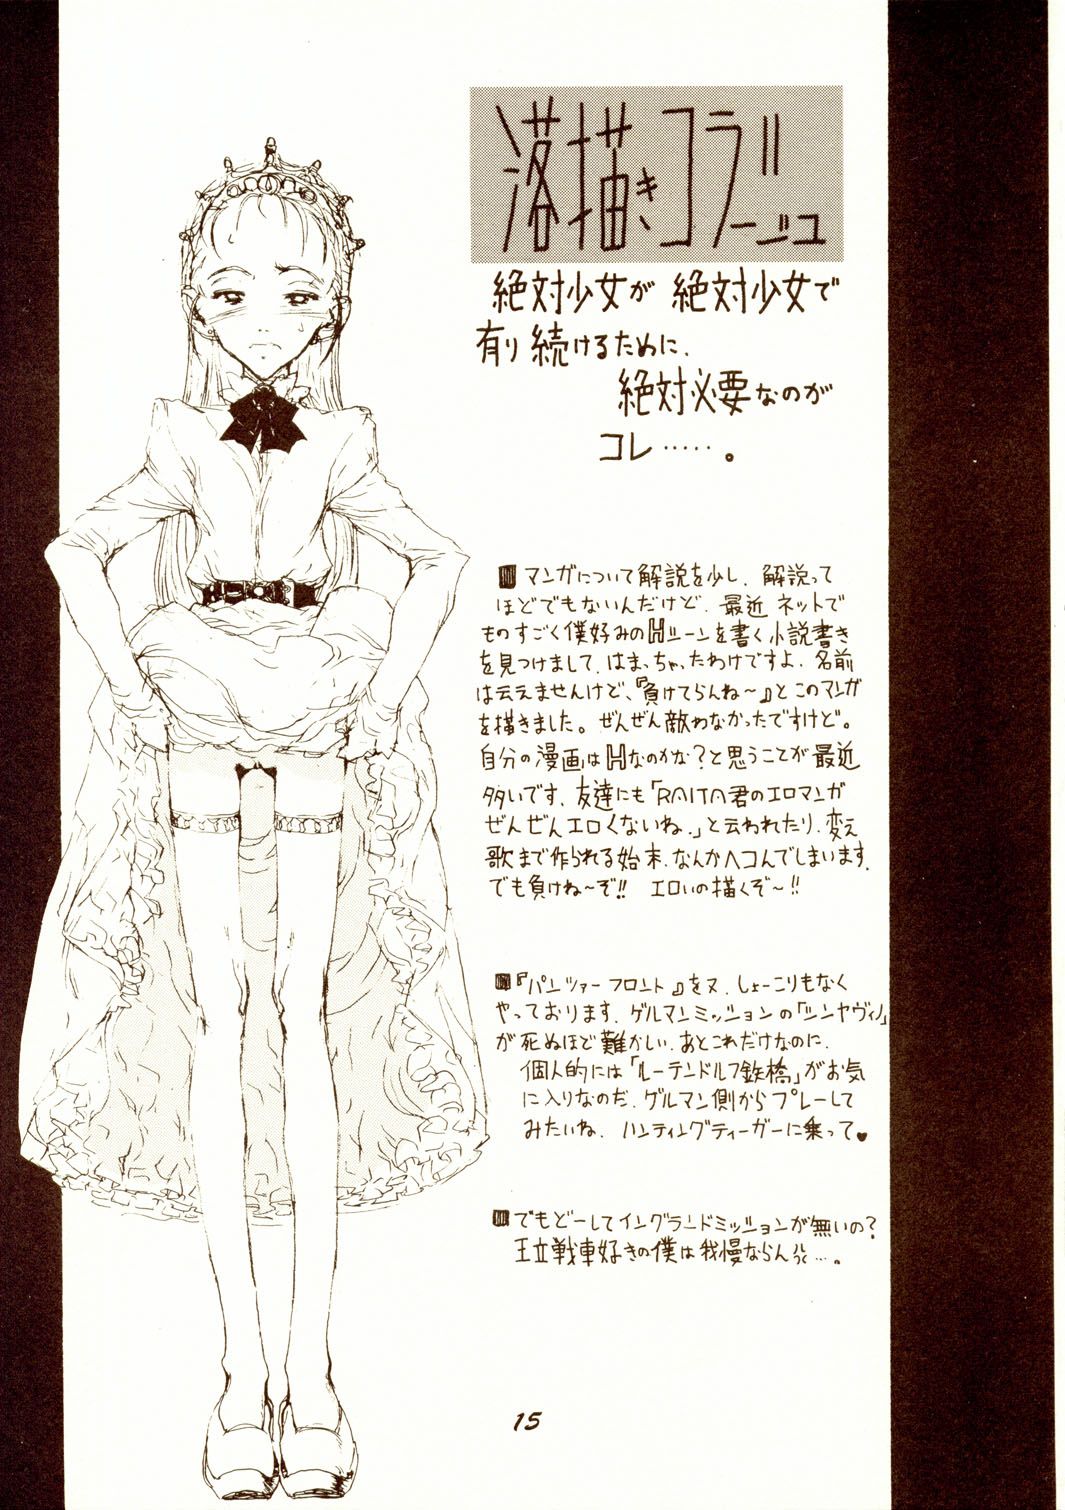 落描きコラージュ
絶対少女が 絶対少女で
有り 続けるために、
絶対必要なのが
コレ……。
マンガについて解説を少し、解説って
ほどでもないんだけど、最近 ネットで
ものすごく僕好みのHシーンを書く小説書き
を見つけまして、はまっちゃったわけですよ、名前
は云えませんけど、『負けてらんね〜』とこのマンガ
を描きました。ぜんぜん敵わなかったですけど。
自分の漫画はHなのかな?と思うことが最近
多いです、友達にも「RAITA君のエロマンガ
ぜんぜんエロくないね、」と云われたり、変え
歌まで作られる始末、なんかヘコんでしまいます、
でも負けね〜ぞ!! エロいの描くぞ〜!!
『パンツァーフロント』をヌ、しょーこりもなく
やっております、ゲルマンミッションの「シンヤヴィノ」
が死ぬほど難かしい、あとこれだけなのに、
個人的には「ルーテンドルフ鉄橋」がお気
に入りなのだ、ゲルマン側からプレーして
みたいね、ハンティングティーガーに乗って♥
でもどーしてイングランドミッションが無いの?
王立戦車好きの僕は我慢ならん……。
15